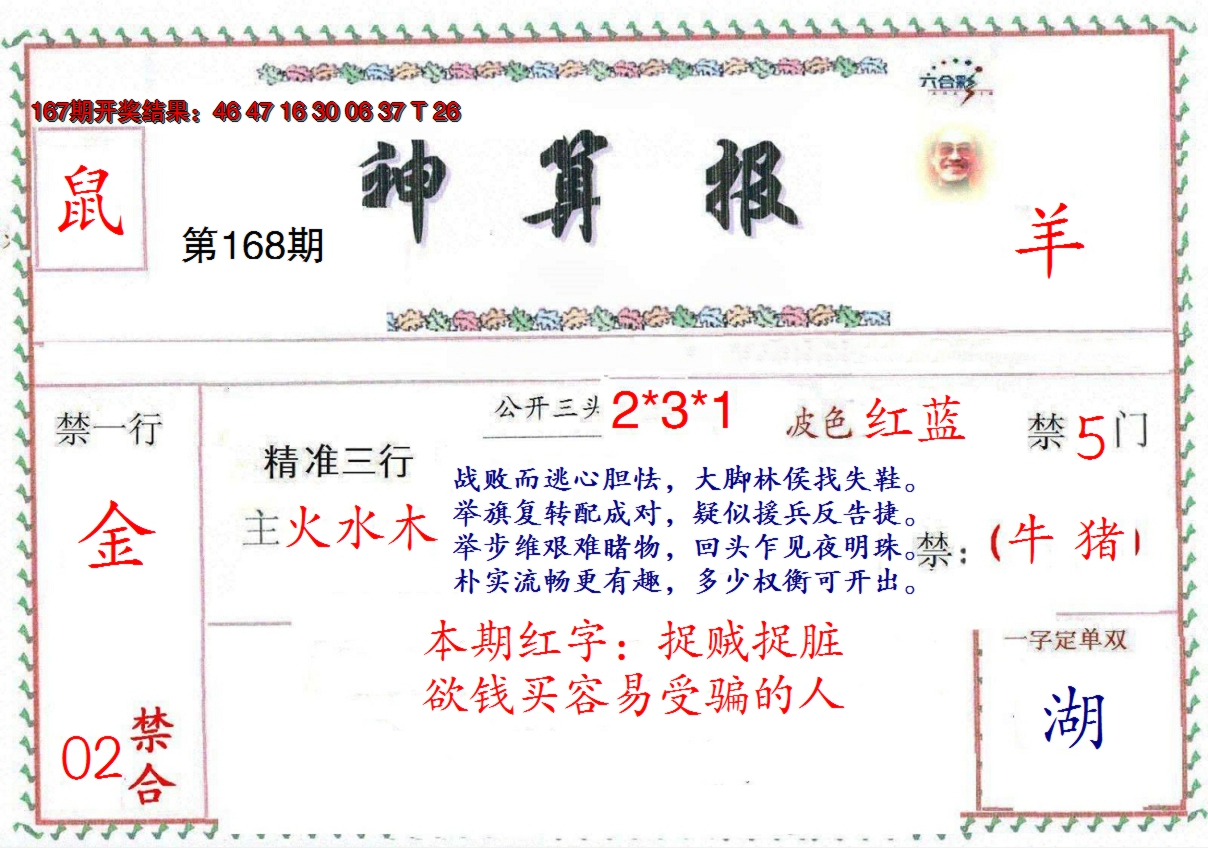 六合彩
167期开奖结果：46 47 16 30 06 37 T 26
神算报
鼠
第168期
羊
禁一行
金
02禁合
精准三行
主火水木
公开三头2*3*1
波色红蓝
禁5门
战败而逃心胆怯，大脚林侯找失鞋。
举旗复转配成对，疑似援兵反告捷。
举步维艰难睹物，回头乍见夜明珠。
朴实流畅更有趣，多少权衡可开出。
禁：（牛 猪）
本期红字：捉贼捉脏
欲钱买容易受骗的人
一字定单双
湖